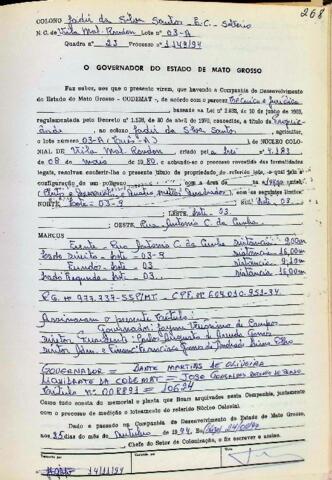 268
COLONO Jadir da Silva Santos - E.C. - Solteiro
N.C. de Vila Mal. Rondon Lote nº 03-A
Quadra nº 23 Processo nº 1.149/94
O GOVERNADOR DO ESTADO DE MATO GROSSO
Faz saber, aos que o presente virem, que havendo a Companhia de Desenvolvimento
do Estado de Mato Grosso - CODEMAT -, de acordo com o parecer Técnico e Jurídico
baseado na Lei nº 3.922, de 10 de junho de
regulamentada pelo Decreto nº 1.138, de 20 de abril de 1970, concedido, a título de
ao colono Jadir da Silva Santos, agricultor,
o lote número 03-A (três-A) do NÚCLEO COLO-
NIAL de Vila Mal. Rondon, criado a Lei nº 4.181
de 08 de maio de 1980, e achando-se o processo revestido das formalidades
legais, resolveu conferir-lhe o presente título de propriedade do referido lote, o qual tem a
configuração de um polígono com a área de
metros quadrados), com os seguintes limites:
NORTE, Lote = 03-9 SUL Lote - 03
LESTE Lote. 03
OESTE Rua Antonio C. da Cunha
MARCOS
Frente Rua Antonio C. da Cunha distancia = 9,00m
Lado Direito - Lote - 03-9 distancia = 16,00m
Fundos - Lote - 03 distancia =
Lado Esquerdo - Lote - 03 distancia = 16,00m
R.G. nº 977.337-SSP/MT - CPF. nº 604.010.951-34
Assinaram o presente titulo:
Governador: Jayme Verissimo de Campos
Diretor Presidente: Paulo Augusto de Arruda Gomes
Diretor Adm. e Financ:
GOVERNADOR = DANTE MARTINS DE OLIVEIRA
LIQUIDANTE DA CODEMAT = JOSÉ GONÇALVES
Titulo nº 008891 = 10624
Como tudo consta do memorial e planta que ficam arquivados nesta Companhia, juntamente
com o processo de medição e loteamento do referido Núcleo Colonial.
Dado e passado na Companhia de Desenvolvimento do Estado de Mato Grosso,
aos 25 dias do mês de outubro de 1994. Eu,
Chefe do Setor de Colonização, o fiz escrever e assino.
14/11/94